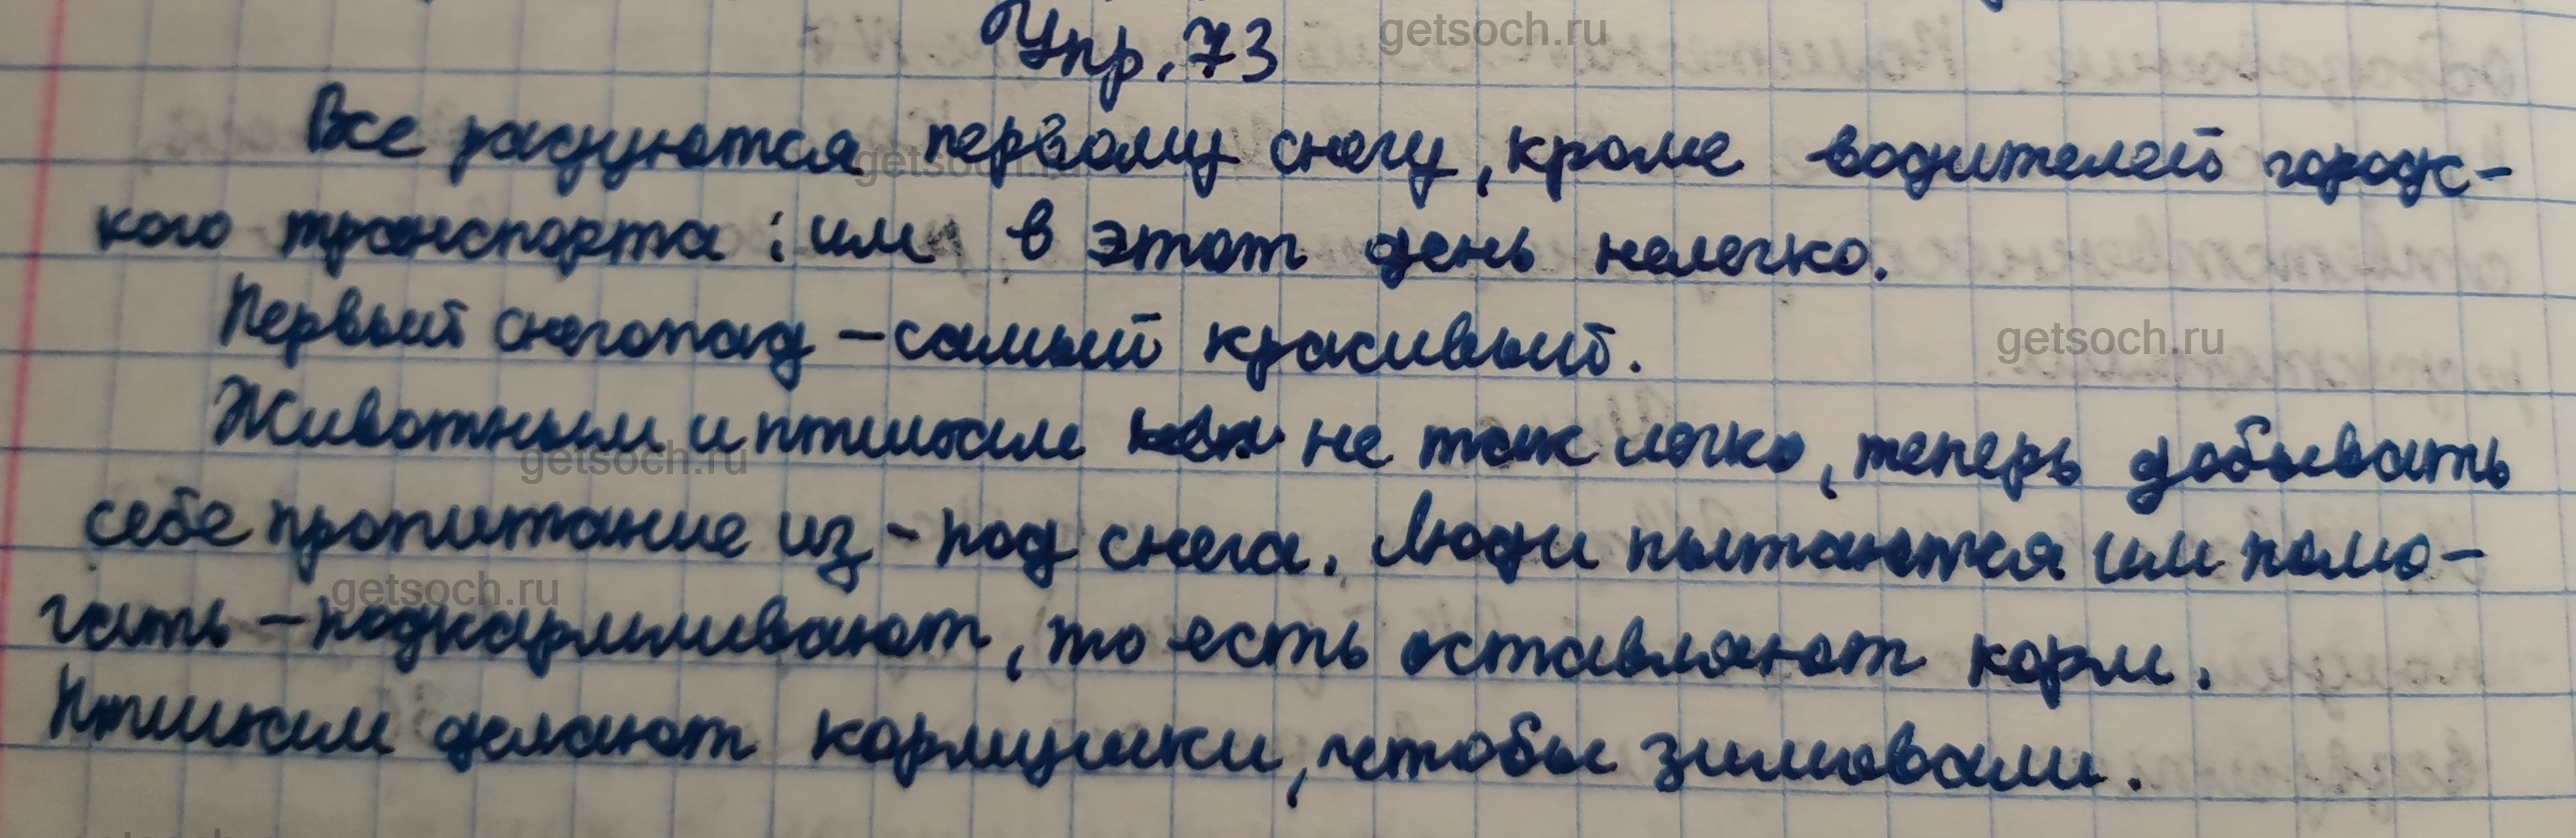 Упр. 73
Все радуются первому снегу, кроме водителей городс-
кого транспорта: им в этот день нелегко.
Первый снегопад – самый красивый.
Животным и птицам не так легко, теперь добывать
себе пропитание из-под снега. Люди пытаются им помо-
гать – подкармливают, то есть оставляют корм.
Птицам делают кормушки, чтобы зимовали.
getsoch.ru
getsoch.ru
getsoch.ru
getsoch.ru
getsoch.ru